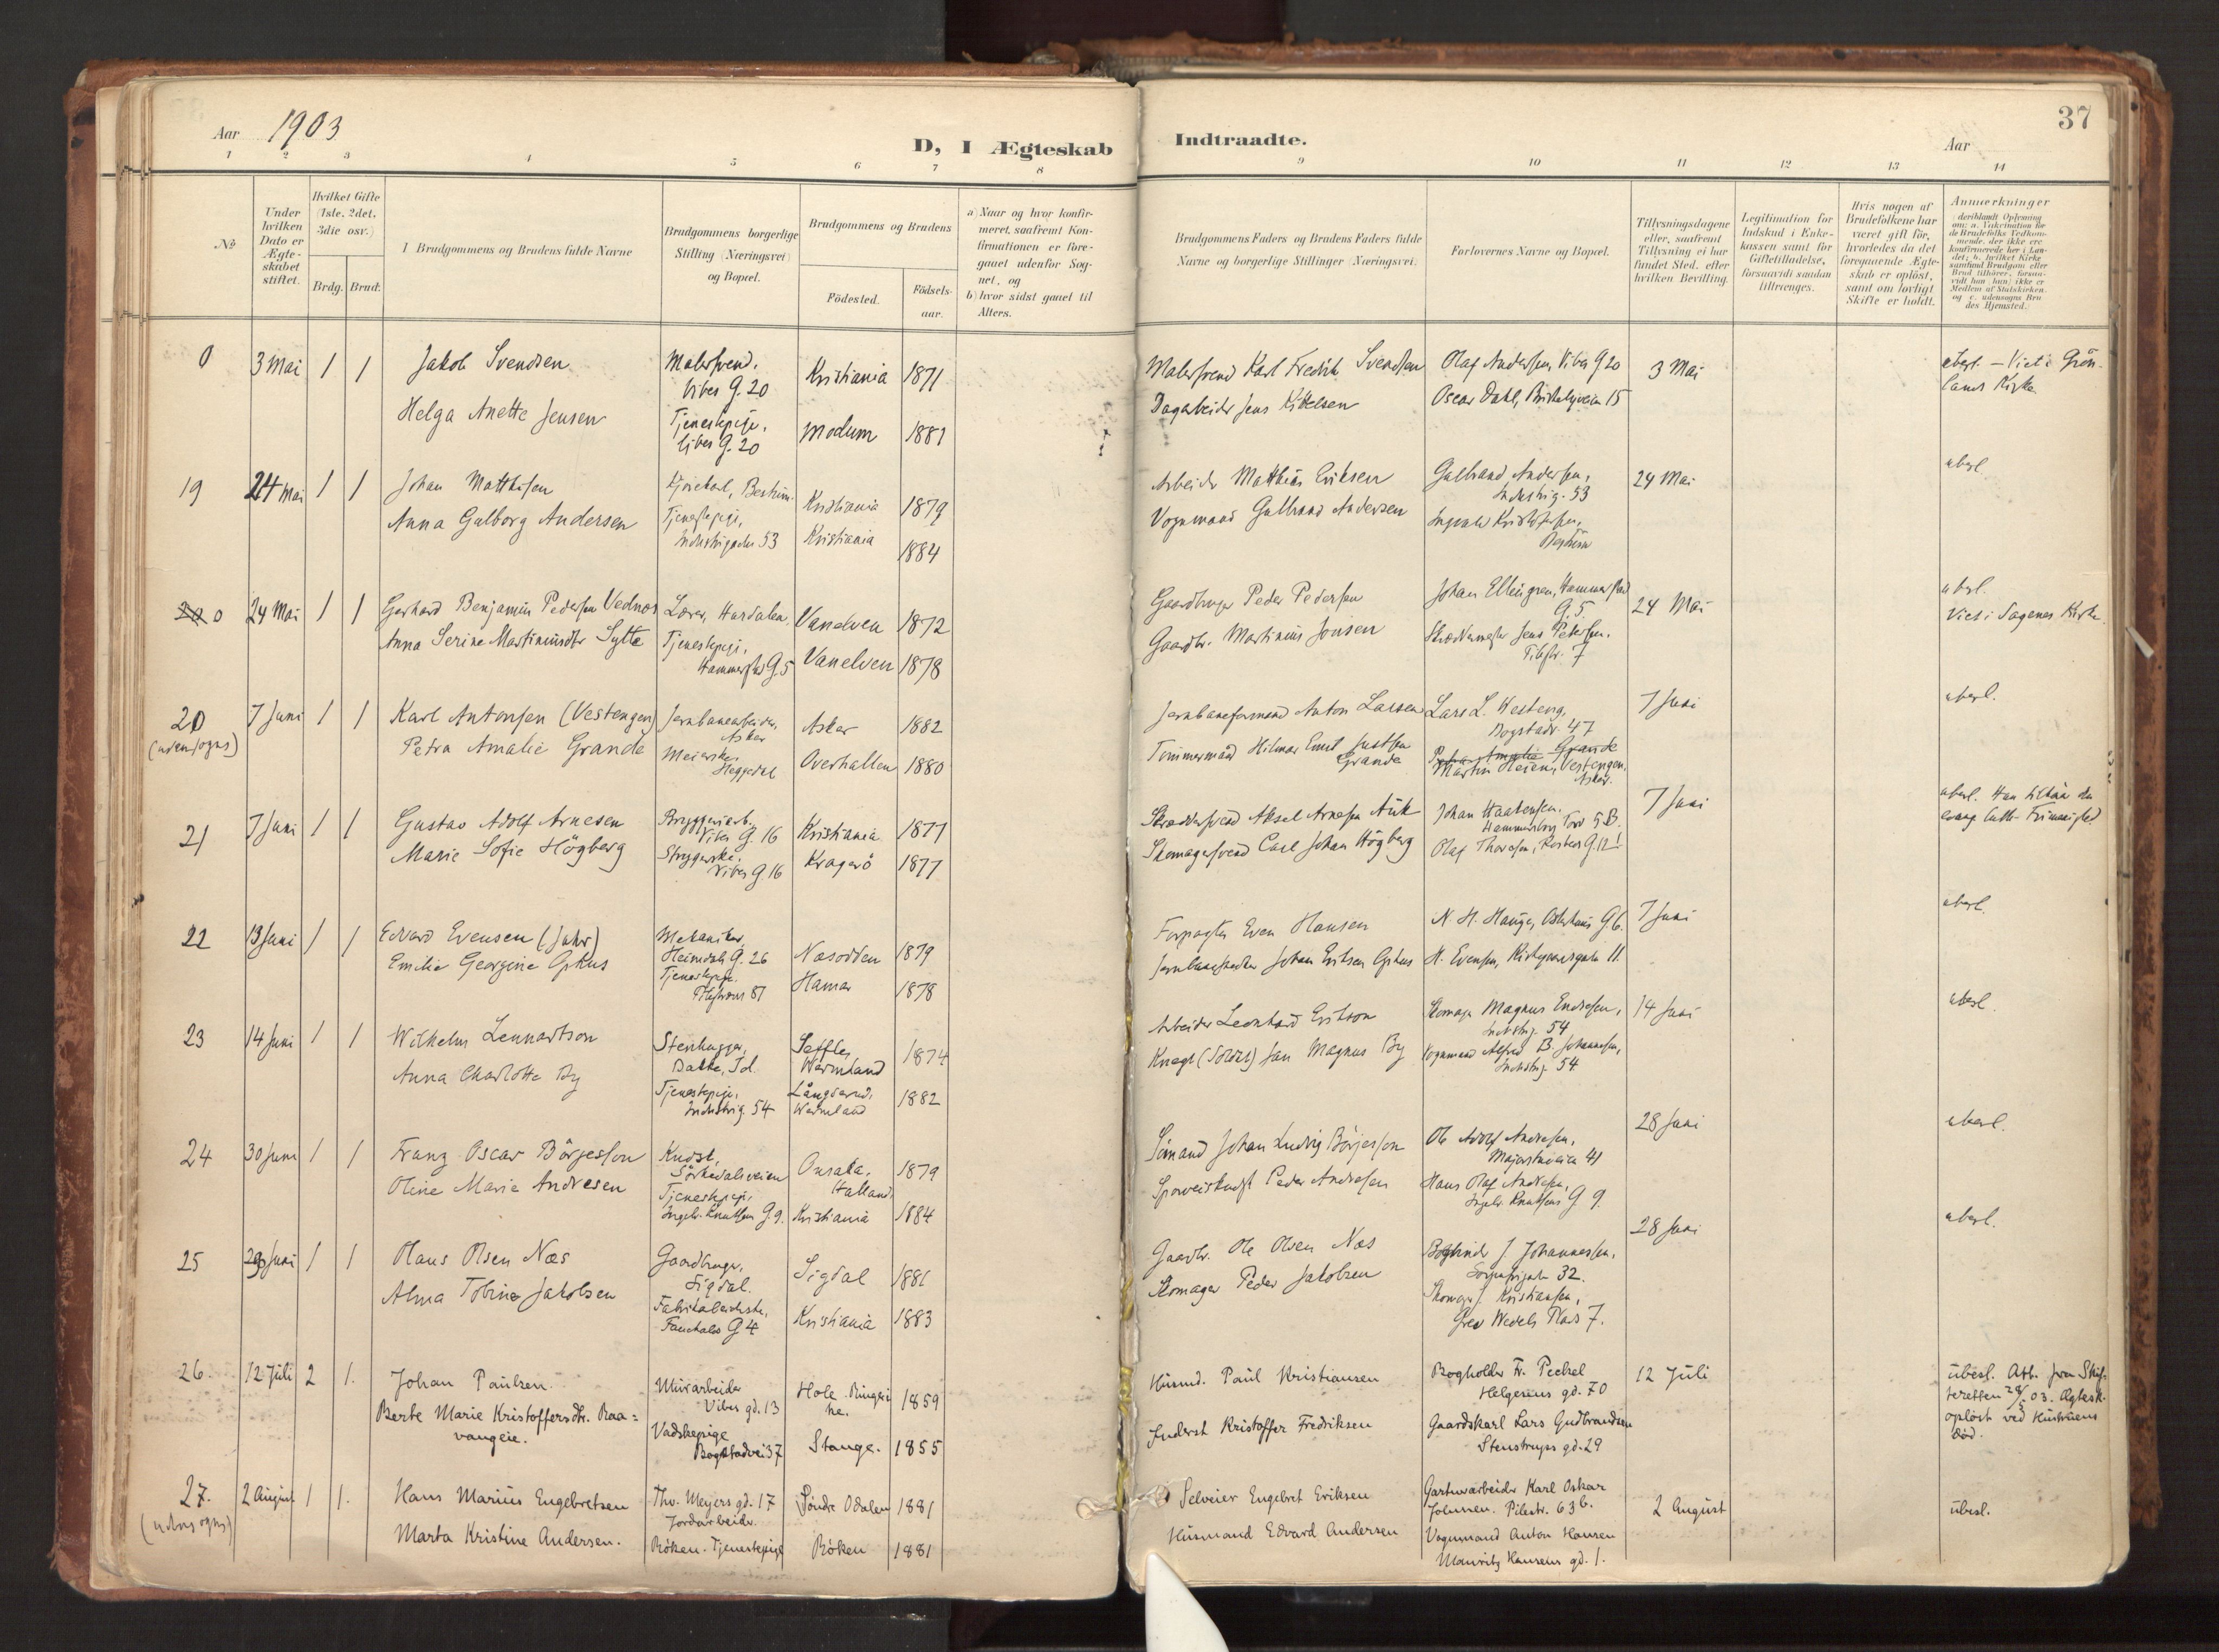 37
Aar 1903
D, I Ægteskab Indtraadte.
Aar
1 2 3 4 5 6 7 8 9 10 11 12 13 14
No
Under hvilken Dato er Ægteskabet stiftet.
Hvilket Gifte (1ste, 2det, 3die osv.)
Brdg. Brud.
Brudgommens og Brudens fulde Navne
Brudgommens borgerlige Stilling (Næringsvei) og Bopæl.
Brudgommens og Brudens
Födested.
Födsels-aar.
a) Naar og hvor konfir-
meret, saafremt Kon-
firmationen er fore-
gaaet udenfor Sog-
net, og
b) hvor sidst gaaet til
Alters.
Brudgommens Faders og Brudens Faders fulde
Navne og borgerlige Stillinger (Næringsvei).
Forlovernes Navne og Bopæl.
Tillysningsdagene
eller, saafremt
Tillysning ei har
fundet Sted, efter
hvilken Bevilling.
Legitimation for
Indskud i Enke-
kassen samt for
Giftetilladelse,
forsaavidt saadan
tiltrænges.
Hvis nogen af
Brudefolkene har
været gift för,
hvorledes da det
foregaaende Ægte-
skab er oplöst,
samt om lovligt
Skifte er holdt.
Anmerkninger
0 3 Mai 1 1
Jakob Svendsen
Helga Anette Jensen
Malersvend,
Vibes G. 20
Tjenestepige,
Vibes G. 20
Kristiania 1871
Modum 1881
Malersvend Karl Fredrik Svendsen
Dagarbeider Jens Kittelsen
Olaf Andersen, Vibes G 20
Oscar Dahl, 15
3 Mai
ubesl. – Viet i Grön-
lands Kirke
19 24 Mai 1 1
Johan Matthisen
Anna Gulborg Andersen
Tjenestepige,
Industrigaden 53
Kristiania 1879
Kristiania 1884
Arbeider Matthias Eriksen
Vognmand Gulbrand Andersen
Gulbrand Andersen,
Industrig. 53
24 Mai
ubesl.
0 24 Mai 1 1
Gerhard Benjamin Pedersen Vednes
Anna Serine Martinusdtr Sylte
Lærer, Hurdalen,
Tjenestepige,
G. 5
Vanelven 1872
Vanelven 1878
Gaardbruger Peder Pedersen
Gaardbr. Martinius Jonsen
Johan Ellingren,
G. 5
Skræddermester Jens Petersen,
7
24 Mai
ubesl.
Viet i Sagenes Kirke.
20 7 Juni 1 1
(udensogns)
Karl Antonsen (Vestengen)
Petra Amalie Grande
Jernbanearbeider,
Asker
Meierske,
Heggedal
Asker 1882
Overhallen 1880
Jernbaneformand Anton Larsen
Tømmermand Hilmar Ernst Justsen
Grande
Lars L. Westeng,
Bogstadv 47
Petra Amalie Grande
Martin Heien, Vestengen,
Asker.
7 Juni
ubesl.
21 7 Juni 1 1
Gustav Adolf Arnesen
Marie Sofie Högberg
Bryggeriarb.
Vibes G. 16
Strygerske,
Vibes G. 16
Kristiania 1877
Kragerö 1877
Skræddersvend Aksel Arnesen
Skomagersvend Carl Johan Högberg
Johan Haakensen,
Hammersborg Torv 5 B.
Olaf Thoresen,
7 Juni
ubesl. Han
22 13 Juni 1 1
Edvard Evensen (Jahr)
Emilie Georgine Ophus
Mekaniker,
Heimdals G. 26
Tjenestepige.
Næsodden 1879
Hamar 1878
Forpagter Even Hansen
Johan Eriksen Ophus
N. H. Hauger, G. 6.
H. Evensen, 11.
7 Juni
ubesl.
23 14 Juni 1 1
Wilhelm Lennartson
Anna Charlotte By
Stenhugger,
Tjenestepige,
Industrig. 54
Seffle,
Wermland 1874
Långserud,
Wermland 1882
Arbeider Leonhard Erikson
Knegt (Soldat) Jan Magnus By
Skomager Magnus Endresen,
Industrig. 54
Vognmand Alfred B. Johannesen,
Industrig. 54
14 Juni
ubesl.
24 30 Juni 1 1
Franz Oscar Börjesson
Oline Marie Andresen
Kudsk,
Sörkedalsveien
Tjenestepige,
Ingebr. Knutsens G. 9.
Onsala,
Halland 1879
Kristiania 1884
Sömand Johan Ludvig Börjesson
Sporveiskudsk Peder Andresen
Ole Adolf Andresen,
Majorstuveien 41
Hans Olaf Andresen,
Ingebr. Knutsens G 9.
28 Juni
ubesl.
25 Juni 1 1
Olaus Olsen Næs
Alma Tobine Jakobsen
Gaardbruger,
Sigdal.
Fabrikarbeiderske,
Fauchalds G 4
Sigdal 1881
Kristiania 1883
Gaardbr. Ole Olsen Næs
Skomager Peder Jakobsen
Bogbinder J. Johannessen,
Sorgenfrigaden 32.
Skomager J. Kristiansen,
Grev Wedels Plads 7.
28 Juni
ubesl.
26. 12 Juli 2 1.
Johan Paulsen.
Berte Marie Kristoffersdtr. Raa=
vangeie.
Murarbeider
Vibes gd. 13
Vadskepige
Bogstadvei 37
Hole Ringeri-
ke. 1859
Stange. 1855
Husmd. Paul Kristiansen
Inderst Kristoffer Fredriksen
Bogholder Fr. Pechel
Helgesens gd. 70
Gaardskarl Lars Gudbrandsen
Stenstrups gd. 29
12 Juli
ubesl. Att. fra Skif-
teretten 28/5 03. Ægtesk.
oplöst ved Hustruens
död.
27. 2 August 1 1.
(udensogns)
Hans Marius Engebretsen
Marta Kristine Andersen.
Thv. Meyers gd. 17
Jordarbeider.
Röken. Tjenestepige
Söndre Odalen 1881
Röken 1881
Selveier Engebret Eriksen
Husmand Edvard Andersen
Gartnerarbeider Karl Oskar
Johnsen. Pilestr. 63 b.
Vognmand Anton Hansen
Mauritz Hansens gd. 1.
2 August
ubesl.